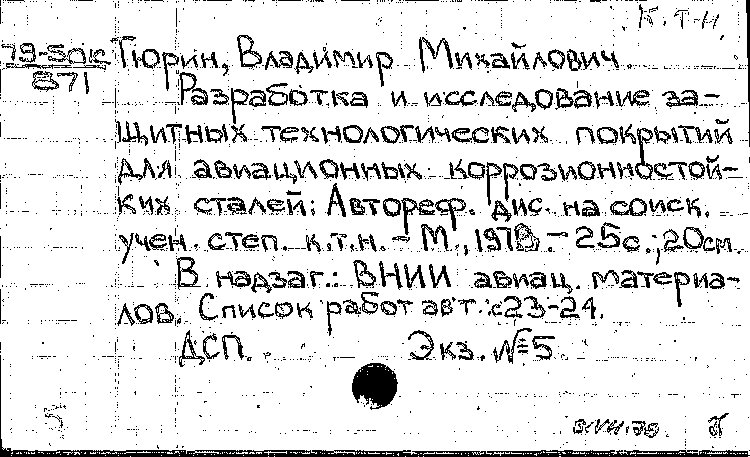 К.Т.Н.
79-50к Тюрин, Владимир Михайлович.
871
Разработка и исследование за-
щитных технологических покрытий
для авиационных коррозионностой-
ких сталей: Автореф. дис. на соиск.
учен. степ. к.т.н. - М., 1978. - 25с.; 20см.
В надзаг.: ВНИИ авиац. материа-
лов. Список работ авт.: с23-24.
ДСП. Экз. №5
5